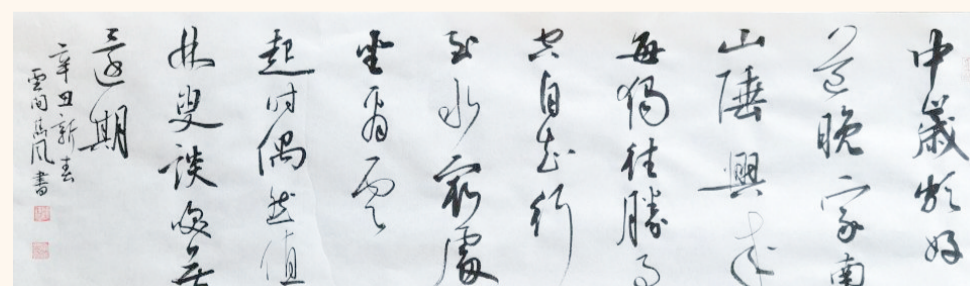 中歲頗好
道晚家南
山陲興來
每獨往勝事
空自知行
到水窮處
坐看雲
起時偶然值
林叟談笑無
還期
辛丑新春
雲間風書